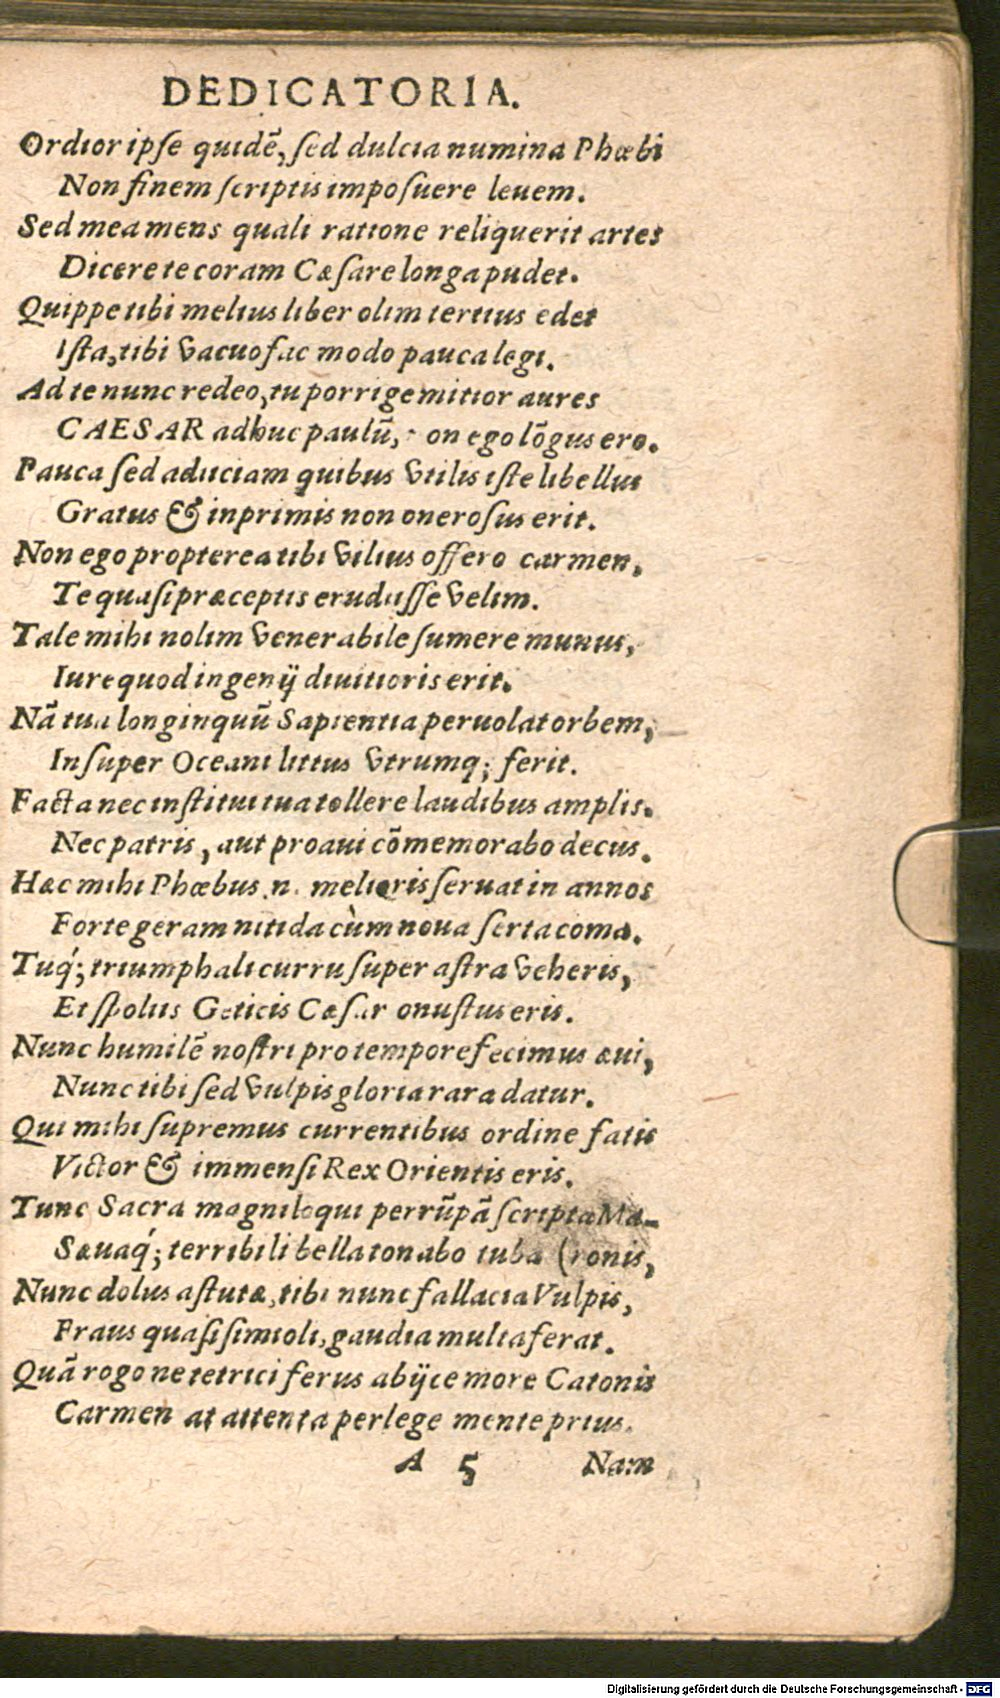 DEDICATORIA.
Ordior ipſe quidē, ſed dulcia numina Phœbi
Non finem ſcriptis impoſuere leuem.
Sed mea mens quali ratione reliquerit artes
Dicere te coram Cæſare longa pudet.
Quippe tibi melius liber olim tertius edet
Iſta, tibi vacuo fac modo pauca legi.
Ad te nunc redeo, tu porrige mitior aures
CAESAR adhuc paulū, on ego lōgus ero.
Pauca ſed adiiciam quibus vtilis iſte libellus
Gratus & inprimis non oneroſus erit.
Non ego propterea tibi vilius offero carmen,
Te quaſi præceptis erudiiſſe velim.
Tale mihi nolim venerabile ſumere munus,
Iure quod ingenij diuitioris erit.
Nā tua longinquū Sapientia peruolat orbem,
Inſuper Oceani littus vtrumq; ferit.
Facta nec inſtitui tua tollere laudibus amplis.
Nec patris, aut proaui cōmemorabo decus.
Hæc mihi Phœbus, n. melioris ſeruat in annos
Forte geram nitida cùm noua ſerta coma.
Tuq́; triumphali curru ſuper aſtra veheris,
Et ſpoliis Geticis Cæſar onuſtus eris.
Nunc humilē noſtri pro tempore fecimus æui,
Nunc tibi ſed vulpis gloria rara datur.
Qui mihi ſupremus currentibus ordine fatis
Victor & immenſi Rex Orientis eris.
Tunc Sacra magniloqui perrūpā ſcripta Ma-
Sæuaq́; terribili bella tonabo tuba (ronis,
Nunc dolus aſtutæ, tibi nunc fallacia Vulpis,
Fraus quaſi ſimioli, gaudia multa ferat.
Quā rogo ne tetrici ferus abijce more Catonis
Carmen at attenta perlege mente prius.
A 5 Nam
Digitalisierung gefördert durch die Deutsche Forschungsgemeinschaft - DFG